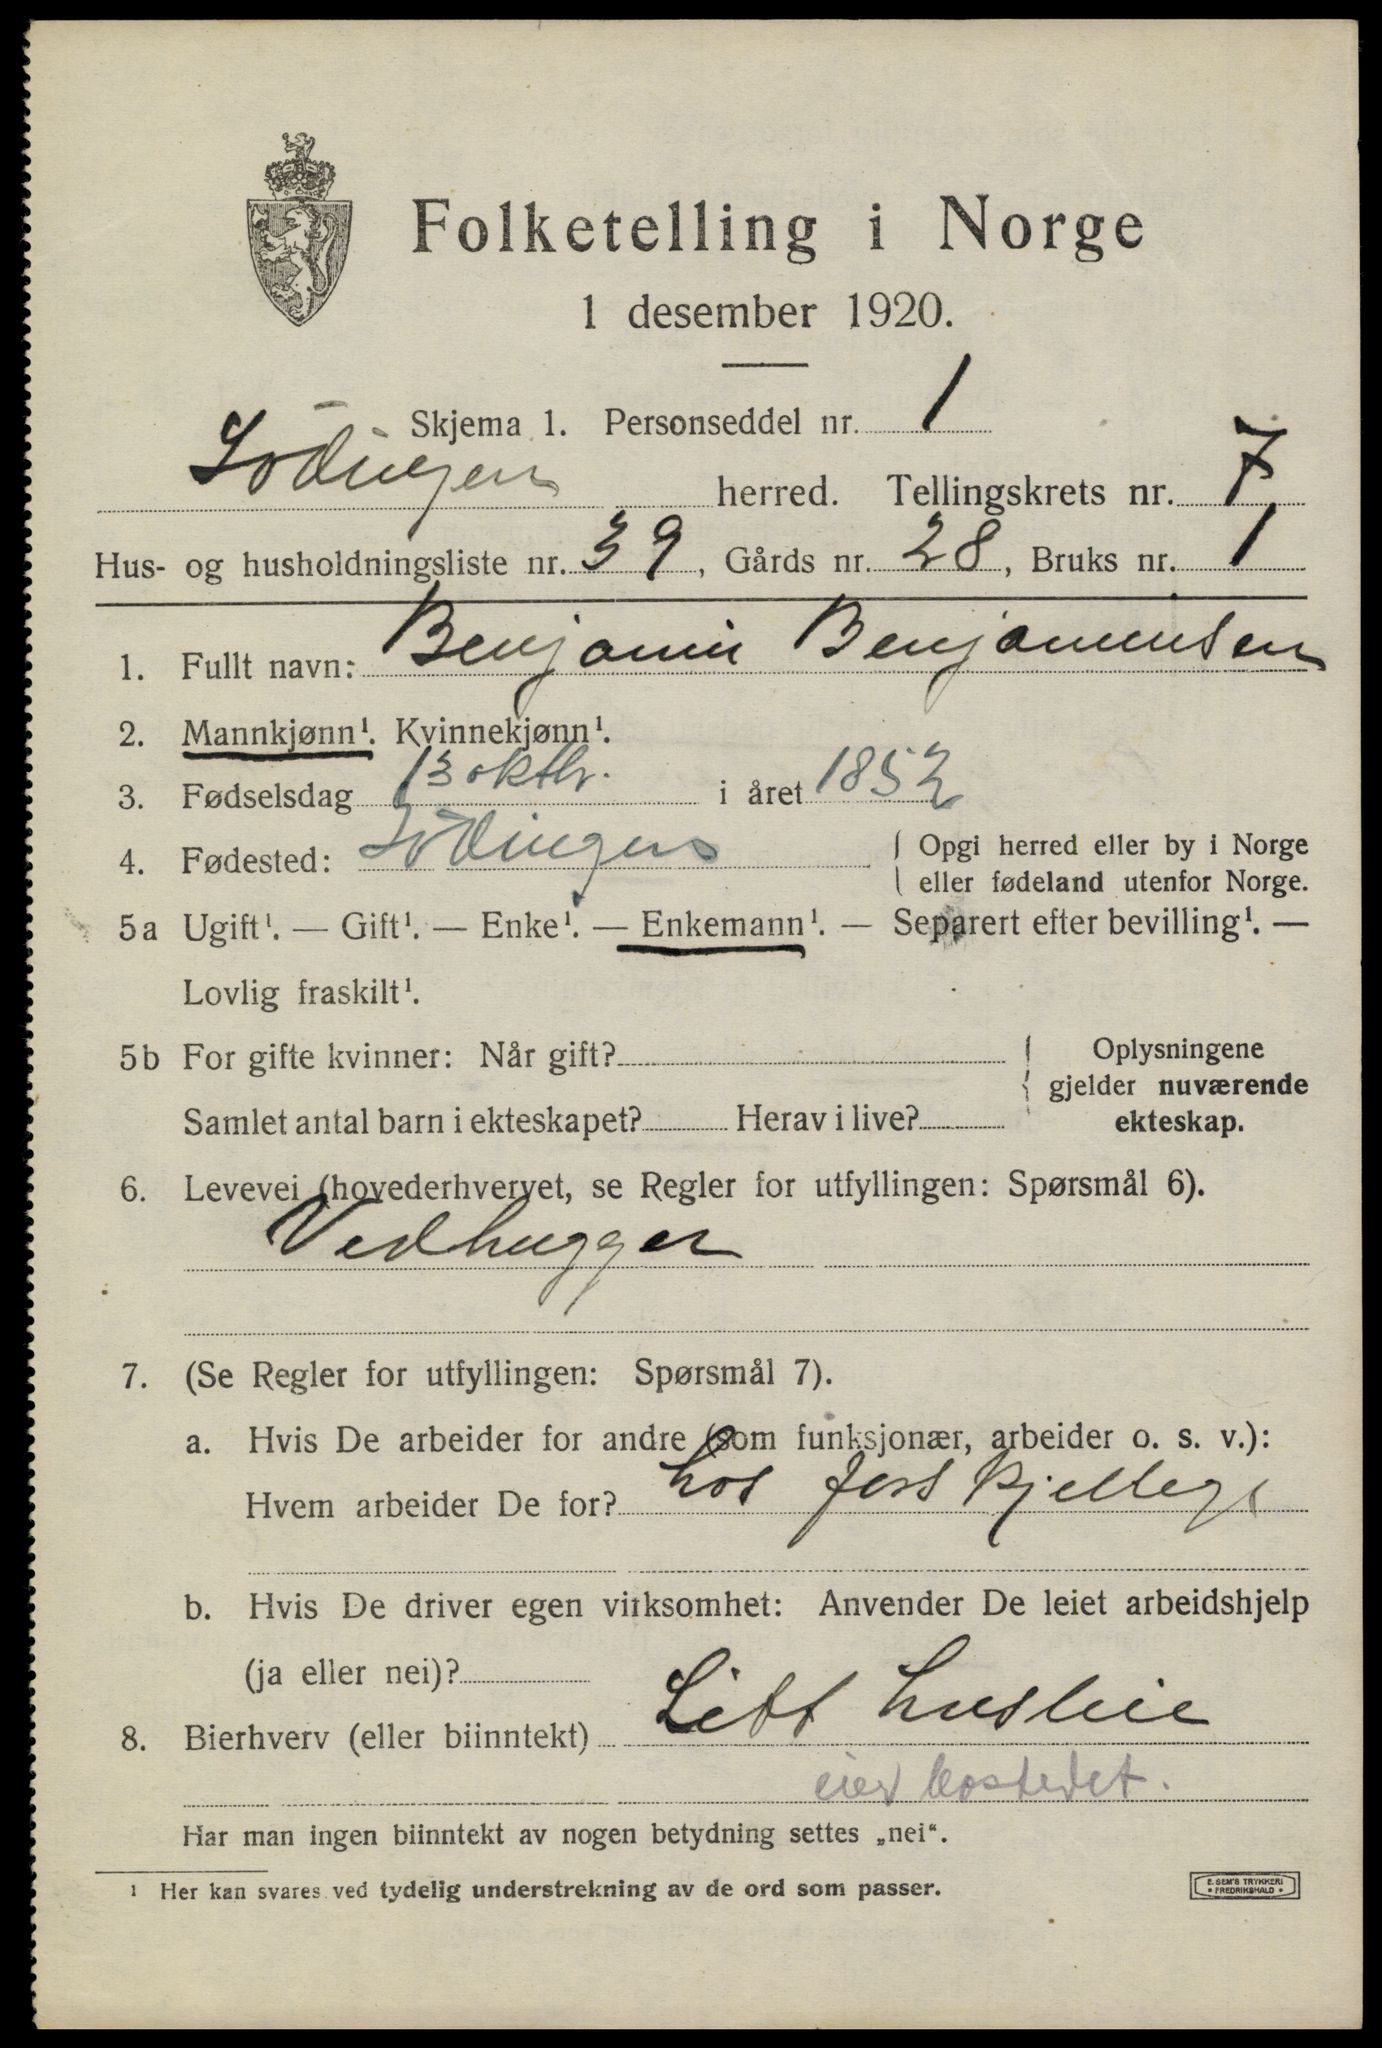 Folketelling i Norge
1 desember 1920.
Skjema 1. Personseddel nr. 1
Lödingen herred. Tellingskrets nr. 7
Hus- og husholdningsliste nr. 39, Gårds nr. 28, Bruks nr. 1
1. Fullt navn: Benjamin Benjaminsen
2. Mannkjønn¹. Kvinnekjønn¹.
3. Fødselsdag 13 oktbr. i året 1852
4. Fødested: Lödingen { Opgi herred eller by i Norge
eller fødeland utenfor Norge.
5a Ugift¹. — Gift¹. — Enke¹. — Enkemann¹. — Separert efter bevilling¹. —
Lovlig fraskilt¹.
5b For gifte kvinner: Når gift? } Oplysningene
gjelder nuværende
Samlet antal barn i ekteskapet? Herav i live? ekteskap.
6. Levevei (hovederhvervet, se Regler for utfyllingen: Spørsmål 6).
Vedhugger
7. (Se Regler for utfyllingen: Spørsmål 7).
a. Hvis De arbeider for andre (som funksjonær, arbeider o. s. v.):
Hvem arbeider De for? hos
b. Hvis De driver egen virksomhet: Anvender De leiet arbeidshjelp
(ja eller nei)?
8. Bierhverv (eller biinntekt) Litt husleie
eier bostedet.
Har man ingen biinntekt av nogen betydning settes „nei“.
¹ Her kan svares ved tydelig understrekning av de ord som passer.
E. SEM'S TRYKKERI
• FREDRIKSHALD •